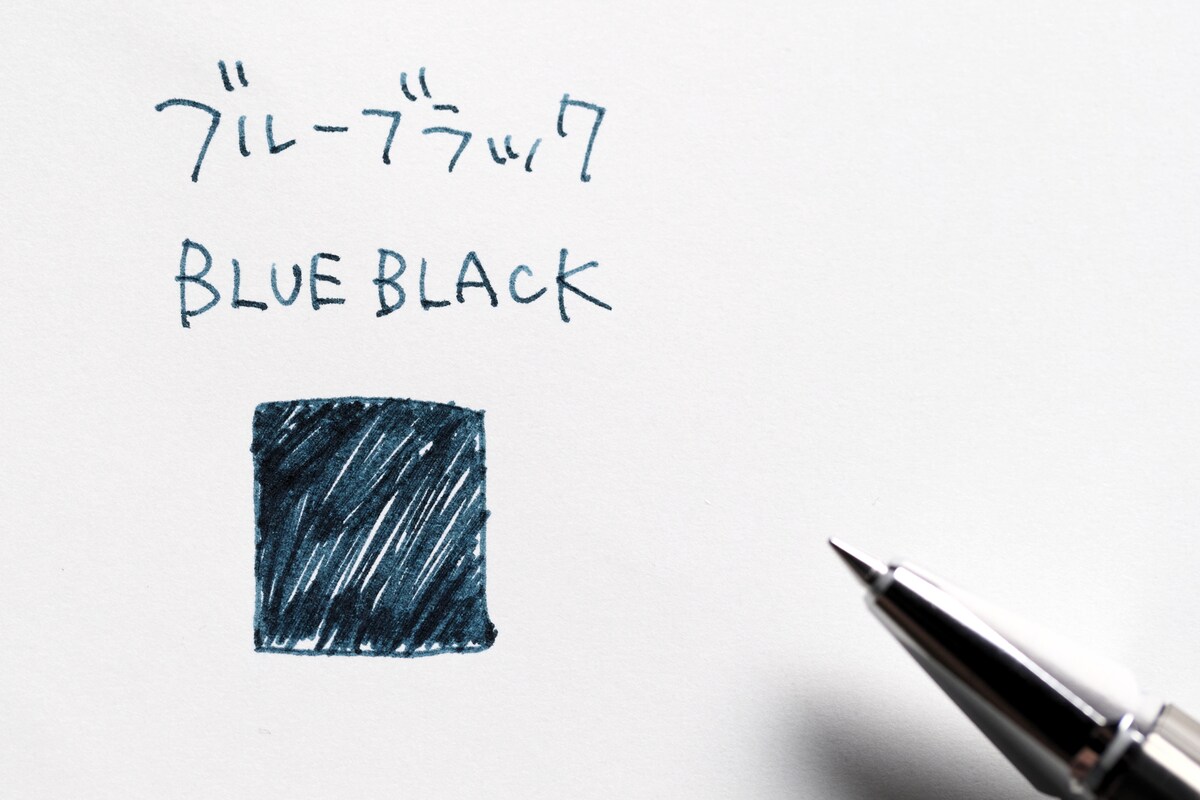 ブルーブラック
BLUE BLACK